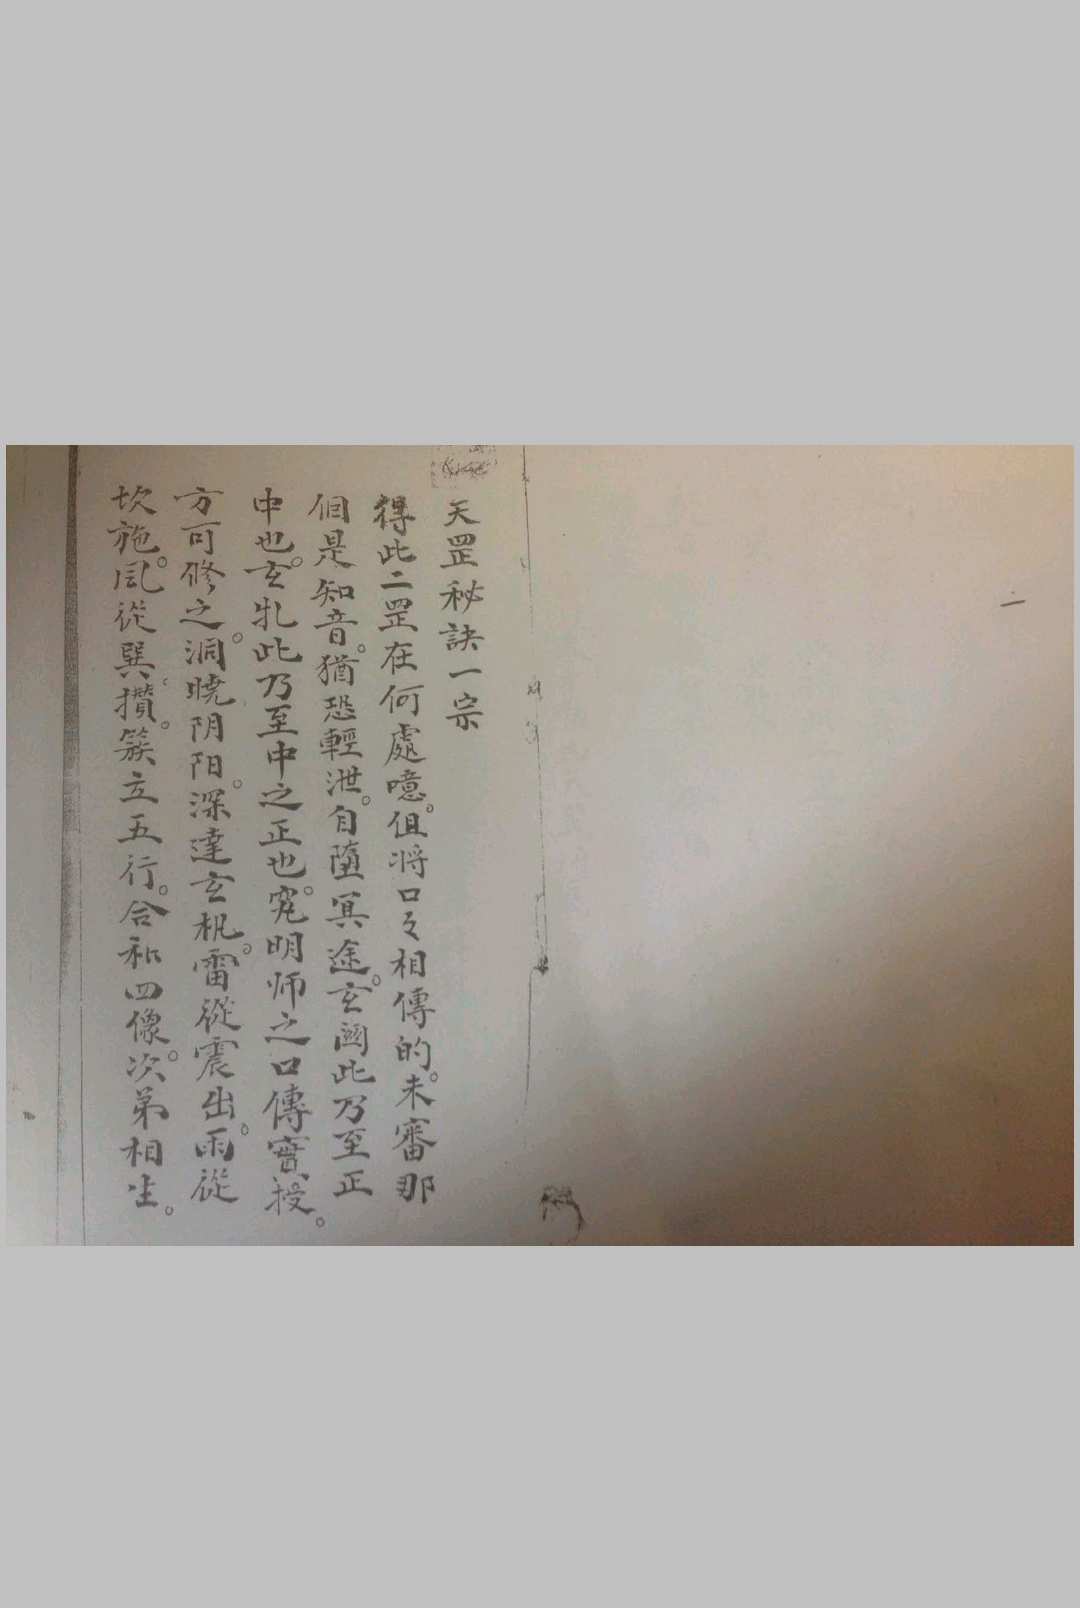 天罡秘訣一宗
得此二罡在何處噫。但將口々相傳的。未審那
個是知音。猶恐輕泄。自墮冥途。玄関此乃至正
中也。玄牝此乃至中之正也。究明师之口傳實授。
方可修之。洞曉阴阳。深達玄机。雷從震出。雨從
坎施。風從巽。攢。簇立五行。合和四像。次第相生。